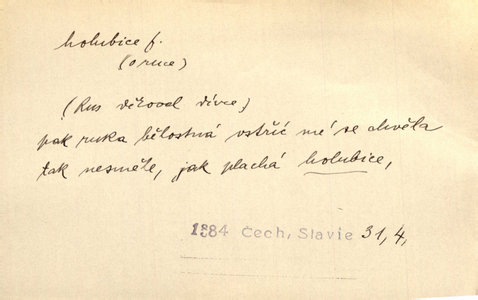 holubice f.
(o ruce)
(Rus děkoval dívce)
pak ruka bělostná vstříc mé se chvěla
tak nesměle, jak plachá holubice,
1884 Čech, Slavie 31,4,